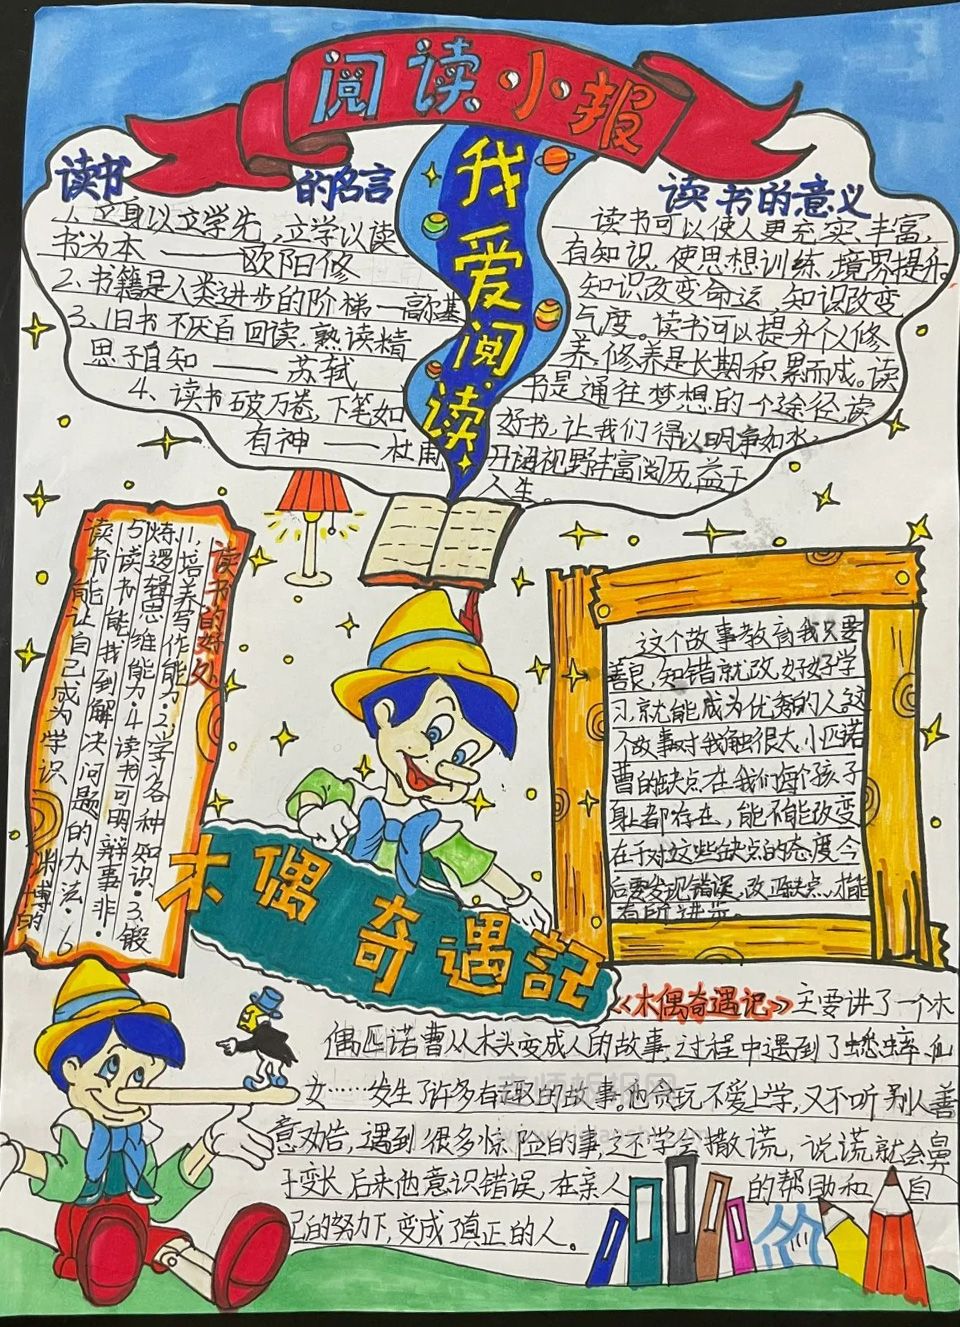 阅读小报
我爱阅读
读书的名言
1、立身以立学先,立学以读
书为本——欧阳修
2、书籍是人类进步的阶梯—高尔基
3、旧书不厌百回读,熟读精
思子自知——苏轼
4、读书破万卷,下笔如
有神——杜甫
读书的意义
读书可以使人更充实、丰富,
自知识,使思想训练、境界提升。
知识改变命运,知识改变
气度。读书可以提升个人修
养,修养是长期积累而成。读
书是通往梦想的一个途径,读
好书,让我们得以明净如水,
开语视野丰富阅历,益于
人生。
读书的好处
1,培养写作能力·2学各种知识·3、锻
炼逻辑思维能力·4读书可明辩事非·
5读书能找到解决问题的办法·6
读书能让自己成为学识渊博的
这个故事教育我只要
善良,知错就改,好好学
习,就能成为优秀的人这
个故事对我触很大,小匹诺
曹的缺点在我们每个孩子
身上都存在,能不能改变
在于对这些缺点的态度今
后要发现错误,改正缺点,才能
有所进步。
木偶奇遇記
《木偶奇遇记》主要讲了一个木
偶匹诺曹从木头变成人的故事,过程中遇到了蟋蟀、仙
女……发生了许多有趣的故事。他贪玩不爱上学,又不听别人善
意劝告,遇到很多惊险的事,还学会撒谎,说谎就会鼻
子变长后来他意识错误,在亲人的帮助和自
己的努力下,变成了真正的人。
老师板报网